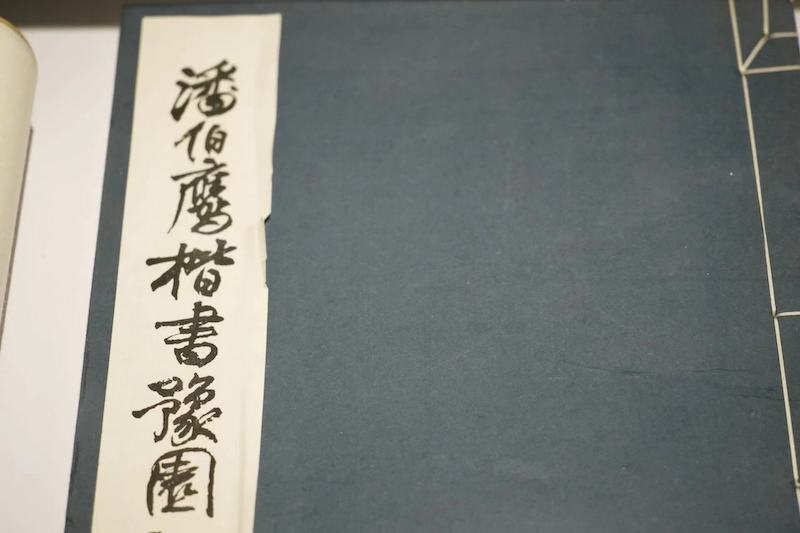 潘伯鷹楷書豫園